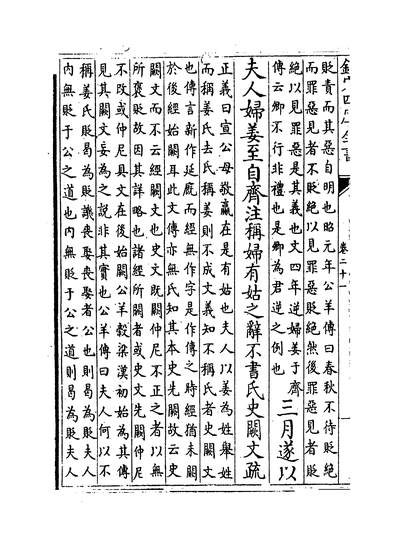 欽定四庫全書
卷二十一
貶責而其惡自明也昭元年公羊傳曰春秋不待貶絕
而罪惡見者不貶絕以見罪惡貶絕然後罪惡見者貶
絕以見罪惡是其義也文四年逆婦姜于齊
傳云卿不行非禮也是卿為君逆之例也
三月遂以
夫人婦姜至自齊注稱婦有姑之辭不書氏史闕文疏
正義曰宣公母敬嬴在是有姑也夫人以姜為姓舉姓
而稱姜氏去氏稱姜則不成文義知不稱氏者史闕文
也傳言新作延廐而經無作字是作傳之時經猶未闕
於後經始闕耳此文傳亦無氏知其本史先闕故云史
闕文而不云經闕文也史文既闕仲尼不正之者以無
所褒貶故因其詳略也諸經所闕者或史文先闕仲尼
不改或仲尼具文在後始闕公羊穀梁漢初始為其傳
見其闕文妄為之說非其實也公羊傳曰夫人何以不
稱姜氏貶曷為貶譏喪娶喪娶者公也則曷為貶夫人
內無貶于公之道也內無貶于公之道則曷為貶夫人